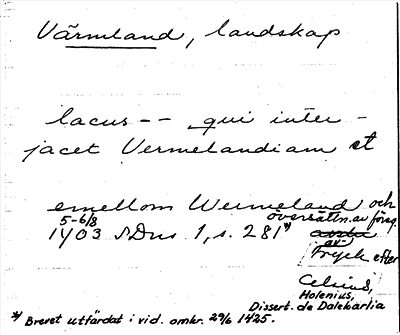 Värmland, landskap
lacus -- qui inter-
jacet Vermelandiam et
emellom Wermeland och
5-6/8 översättn. av föreg.
1403 SDns 1, s. 281*)
av
Tryck efter
Celsius,
Holenius,
Dissert. de Dalekarlia
*) Brevet utfärdat i vid. omkr. 29/6 1425.